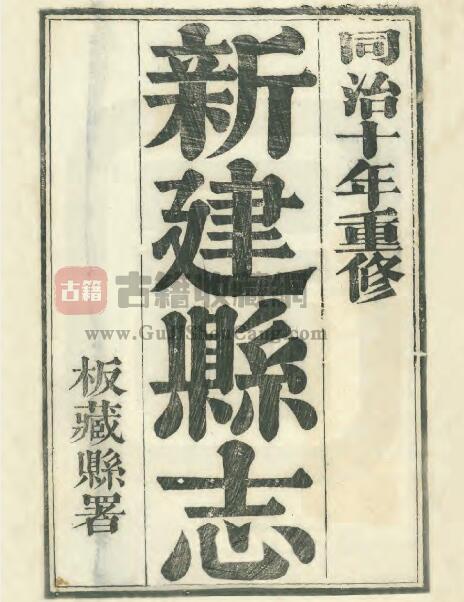 同治十年重修
新建縣志
板藏縣署
古籍
古籍收藏網
www.GuJiShouCang.com